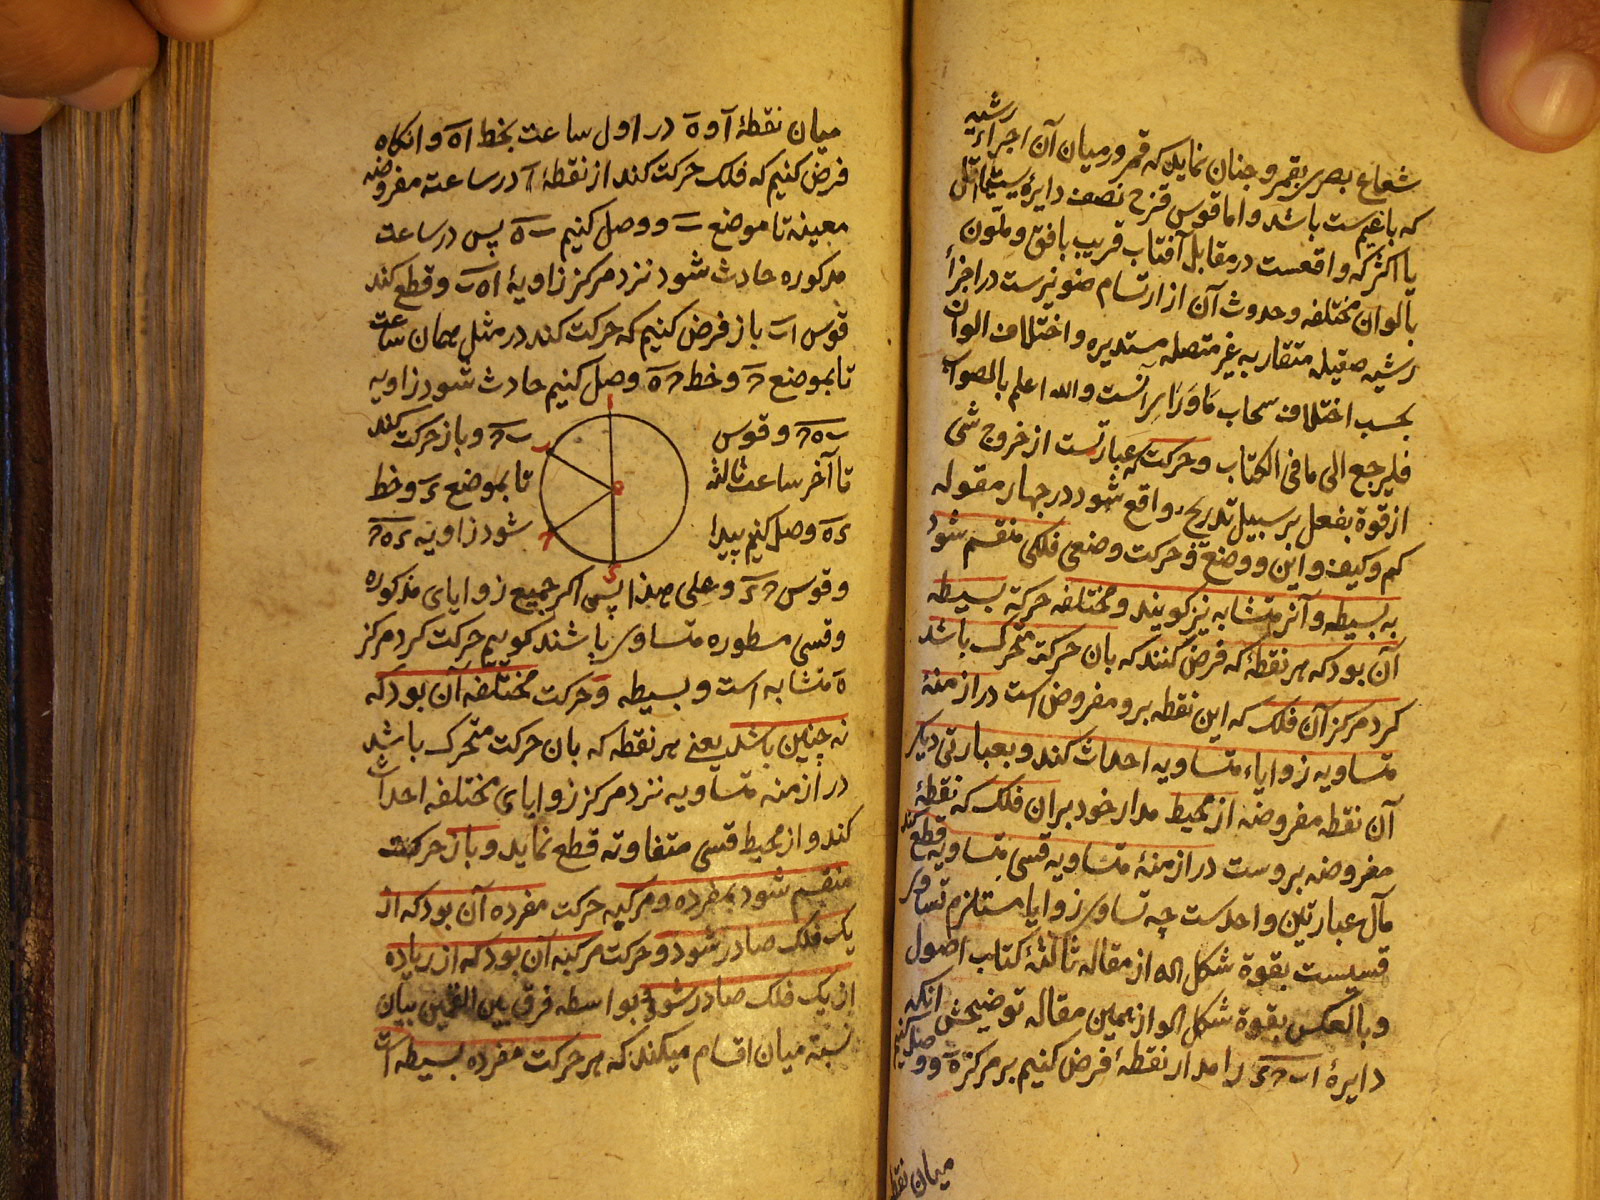 شعاع بصری بقمر و چنان نماید که قمر در میان آن اجزاء رشیه
که با غیمست باشد و اما قوس قزح نصف دایره یست یا اقل
یا اکثر که واقعست در مقابل آفتاب قریب بافق و ملون
بالوان مختلفه و حدوث آن از ارتسام ضوء نیرست در اجزأ
رشیه صقیله متقاربه غیر متصله مستدیره و اختلاف الوان
بحسب اختلاف سحاب ماوراء آنست والله اعلم بالصواب
فلیرجع الی ما فی الکتاب و حرکت که عبارتست از خروج شی
از قوة بفعل بر سبیل تدریج واقع شود در چهار مقوله
کم و کیف و این و وضع و حرکت وضعی فلکی منقسم شود
به بسیطه و آنرا متشابه نیز گویند و مختلفه حرکة بسیطه
آن بود که هر نقطه که فرض کنند که بان حرکت متحرک باشد
کرد مرکز آن فلک که این نقطه برو مفروض است در ازمنهٔ
متساویه زوایاء متساویه احداث کند و بعبارتی دیگر
آن نقطه مفروضه از محیط مدار خود بران فلک که نقطهٔ
مفروضه بروست در ازمنهٔ متساویه قسی متساویه قطع کند
مآل عبارتین واحدست چه تساوی زوایا مستلزم تساوی
قسیست بقوة شکل اله از مقاله ثالثهٔ کتاب اصول
و بالعکس بقوة شکل الو از همین مقاله توضیحش انکه
دایرهٔ اب‌ح‌ی را مدار نقطهٔ فرض کنیم بر مرکز ه و وصل کنیم
میان نقطهٔ
میان نقطهٔ آ و ه در اول ساعت بخط اه و انکاه
فرض کنیم که فلک حرکت کند از نقطهٔ آ در ساعت مفروضه
معینه تا موضع ب و وصل کنیم ب‌ه پس در ساعت
مذکوره حادث شود نزد مرکز زاویهٔ اه‌ب و قطع کند
قوس اب باز فرض کنیم که حرکت کند در مثل همان ساعت
تا بموضع ح و خط ح‌ه وصل کنیم حادث شود زاویه
ب‌ه‌ح و قوس ب‌ح و باز حرکت کند
تا آخر ساعت ثالثه تا بموضع ی و خط
ی‌ه وصل کنیم پیدا شود زاویه ی‌ه‌ح
و قوس ح‌ی و علی هذا پس اکر جمیع زوایای مذکوره
و قسی مسطوره متساوی باشند کوییم حرکت کرد مرکز
ه متشابه است و بسیطه و حرکت مختلفه آن بود که
نه چنین باشد یعنی هر نقطه که بان حرکت متحرک باشد
در ازمنه متساویه نزد مرکز زوایای مختلفه احداث
کند و از محیط قسی متفاوته قطع نماید و باز حرکت
منقسم شود بمفرده و مرکبه حرکت مفرده آن بود که از
یک فلک صادر شود و حرکت مرکبه آن بود که از زیاده
از یک فلک صادر شود و بواسطه فرق بین القسمین بیان
نسبة میان اقسام میکند که هر حرکت مفرده بسیطه است